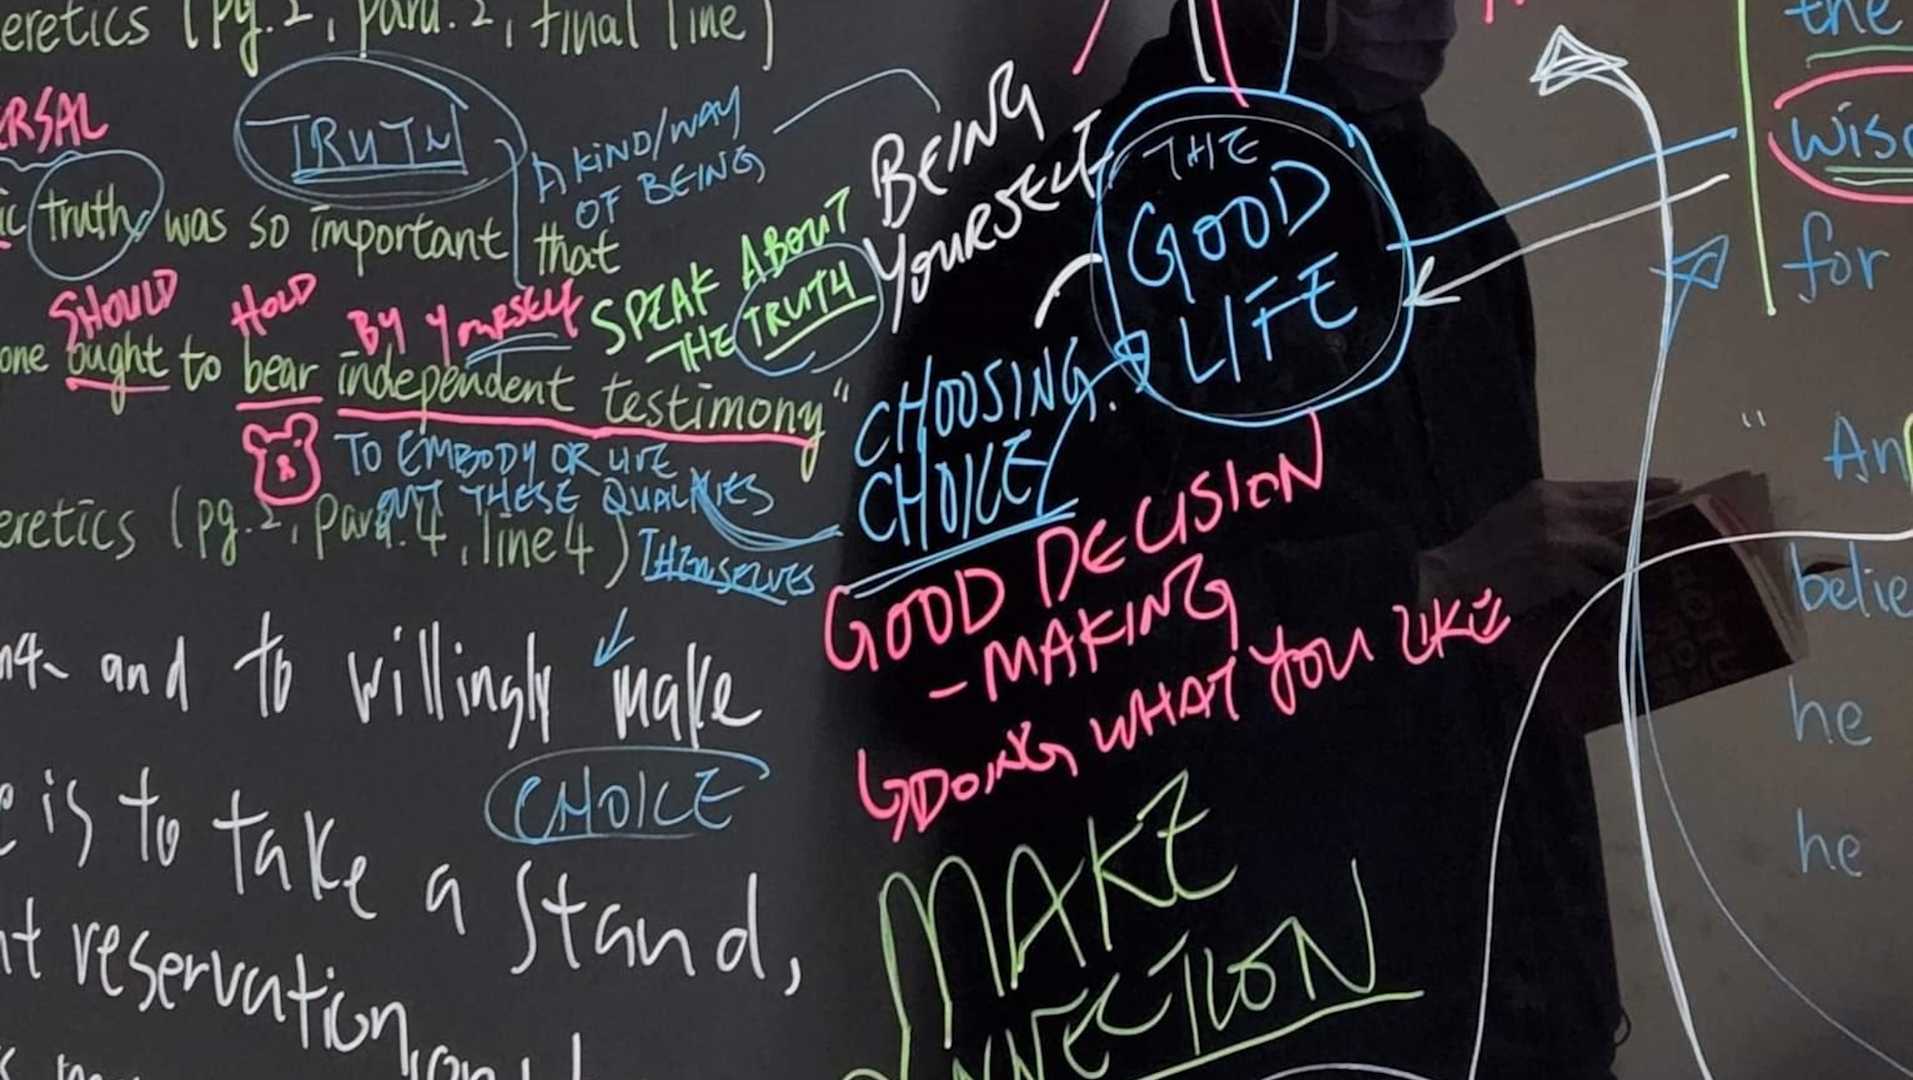 eretics (pg.2, para.2, final line)
ERSAL
TRUTH
A KIND/WAY
OF BEING,
ic truth, was so important that
SHOULD HOLD BY YOURSELF
SPEAK ABOUT
THE TRUTH
one ought to bear independent testimony"
TO EMBODY OR LIVE
OUT THESE QUALITIES
THEMSELVES
eretics (pg.2, para.4, line 4)
and to willingly make
CHOICE
is to take a stand,
nt reservation,
BEING
YOURSELF
THE
GOOD
LIFE
CHOOSING
CHOICE
GOOD DECISION
-MAKING
DOING WHAT YOU LIKE
MAKE
NNECTION
the
wisd
for
" An
belie
he
he